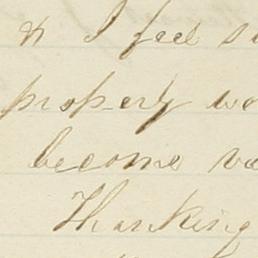 & I feel su
property wo
become va
Thanking